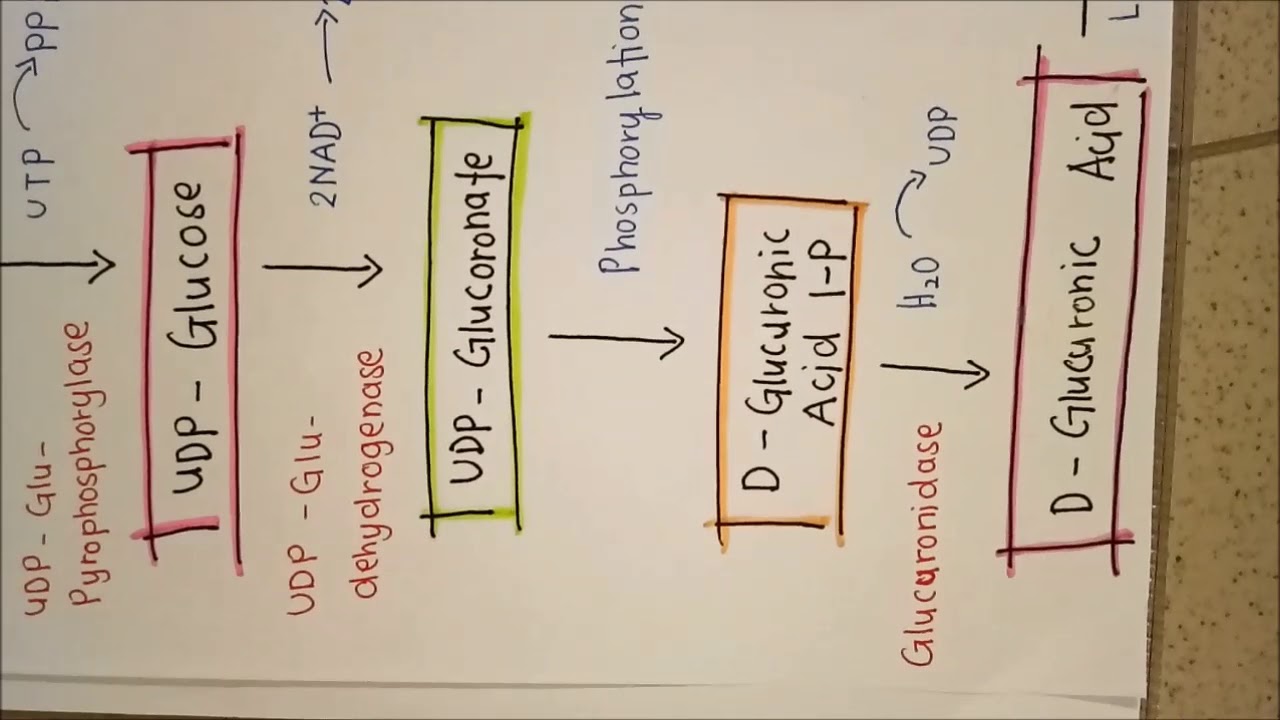 UTP
PP
UDP - Glu-
Pyrophosphorylase
UDP - Glucose
2NAD+
UDP - Glu-
dehydrogenase
UDP - Glucoronate
Phosphorylation
D - Glucuronic
Acid 1-P
H₂O
UDP
Glucuronidase
D - Glucuronic Acid
L